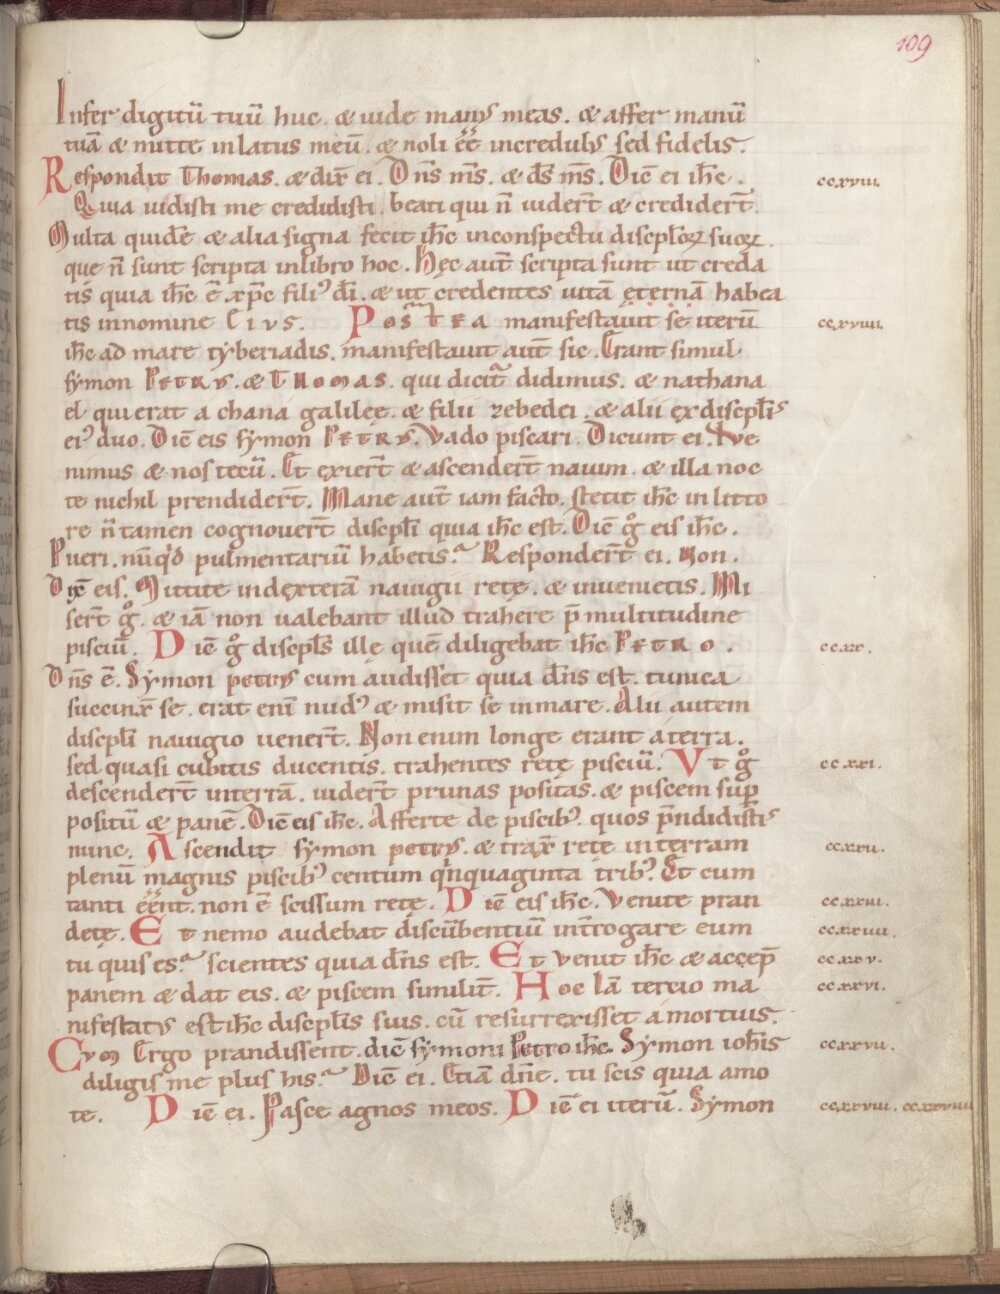 109
Infer digitū tuū huc. & uide manꝰ meas. & affer manū
tuā & mitte in latus meū. & noli ēē incredulꝰ sed fidelis.
Respondit Thomas. & dix̄ ei. Dn̄s m̄s. & ds̄ m̄s. Dic̄ ei ih̄c. ccxviii.
Quia uidisti me credidisti. beati qui n̄ uider̄t & credider̄t.
Multa quidē & alia signa fecit ih̄c in conspectu discipl̄oꝝ suoꝝ.
que n̄ sunt scripta in libro hoc. Hęc aut̄ scripta sunt ut creda
tis quia ih̄c ē xp̄c filiꝰ dī. & ut credentes uitā ęternā habea
tis in nomine EIVS. POSTEA manifestauit se iterū ccxviiii.
ih̄c ad mare tyberiadis. manifestauit aut̄ sic. Erant simul
symon PETRVS. & THOMAS. qui dicit̄ didimus. & nathana
el qui erat a chana galileę. & filii zebedei. & alii ex discipl̄is
eiꝰ duo. Dic̄ eis symon PETRVS. Vado piscari. Dicunt ei. Ve
nimus & nos tecū. Et exier̄t & ascender̄t nauim. & illa noc
te nichil prendider̄t. Mane aut̄ iam facto. stetit ih̄c in litto
re n̄ tamen cognouer̄t discipl̄i quia ih̄c est. Dic̄ gͦ eis ih̄c.
Pueri. nūqd pulmentariū habetis? Responder̄t ei. Non.
Dix̄ eis. Mittite in dexterā nauigii rete. & inuenietis. Mi
ser̄t gͦ. & iā non ualebant illud trahere p̄ multitudine
pisciū. Dic̄ gͦ discipl̄s ille quē diligebat ih̄c PETRO. ccxx.
Dn̄s ē. Symon petrꝰ cum audisset quia dn̄s est. tunica
succinx̄ se. erat enī nudꝰ & misit se in mare. Alii autem
discipl̄i nauigio uener̄t. Non enim longe erant a terra.
sed quasi cubitis ducentis. trahentes rete pisciū. Vt gͦ ccxxi.
descender̄t in terrā. uider̄t prunas positas. & piscem suꝑ
positū & panē. Dic̄ eis ih̄c. Afferte de piscibꝰ. quos p̄ndidistis
nunc. Ascendit symon petrꝰ. & trax̄ rete in terram ccxxii.
plenū magnis piscibꝰ centum quinquaginta tribꝰ. Et cum
tanti ēēnt. non ē scissum rete. Dic̄ eis ih̄c. Venite pran ccxxiii.
dete. Et nemo audebat discūbentiū int̄rogare eum ccxxiiii.
tu quis es? scientes quia dn̄s est. Et venit ih̄c & accep̄ ccxxv.
panem & dat eis. & piscem similit̄. Hoc iā tercio ma ccxxvi.
nifestatꝰ est ih̄c discipl̄is suis. cū resurrexisset a mortuis.
Cvm Ergo prandissent. dic̄ symoni Petro ih̄c. Symon ioh̄is ccxxvii.
diligis me plus his? Dic̄ ei. Etiā dn̄e. tu scis quia amo
te. Dic̄ ei. Pasce agnos meos. Dic̄ ei iterū. Symon ccxxviii. ccxxviiii